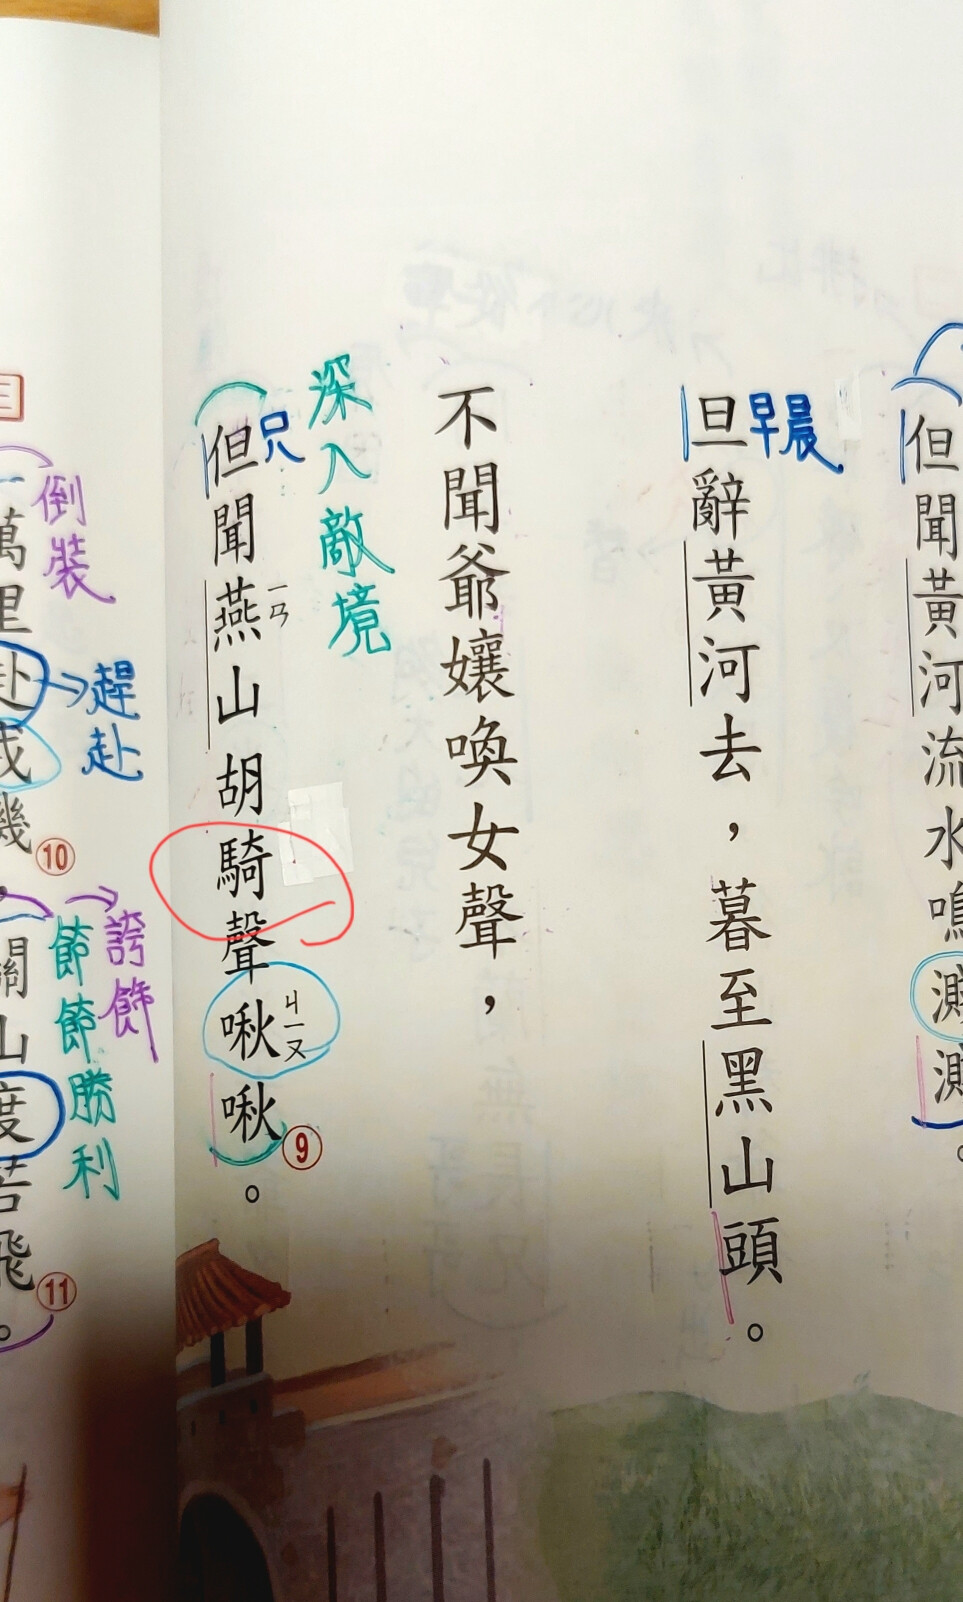 但聞黃河流水鳴
旦辭黃河去，暮至黑山頭。
早晨
不聞爺孃喚女聲，
深入敵境
但聞燕山胡騎聲啾啾⑨。
只
ㄧㄢ
ㄐㄧㄡ
倒裝
趕赴
誇飾
節節勝利
萬里赴戎機⑩，
關山度若飛⑪。